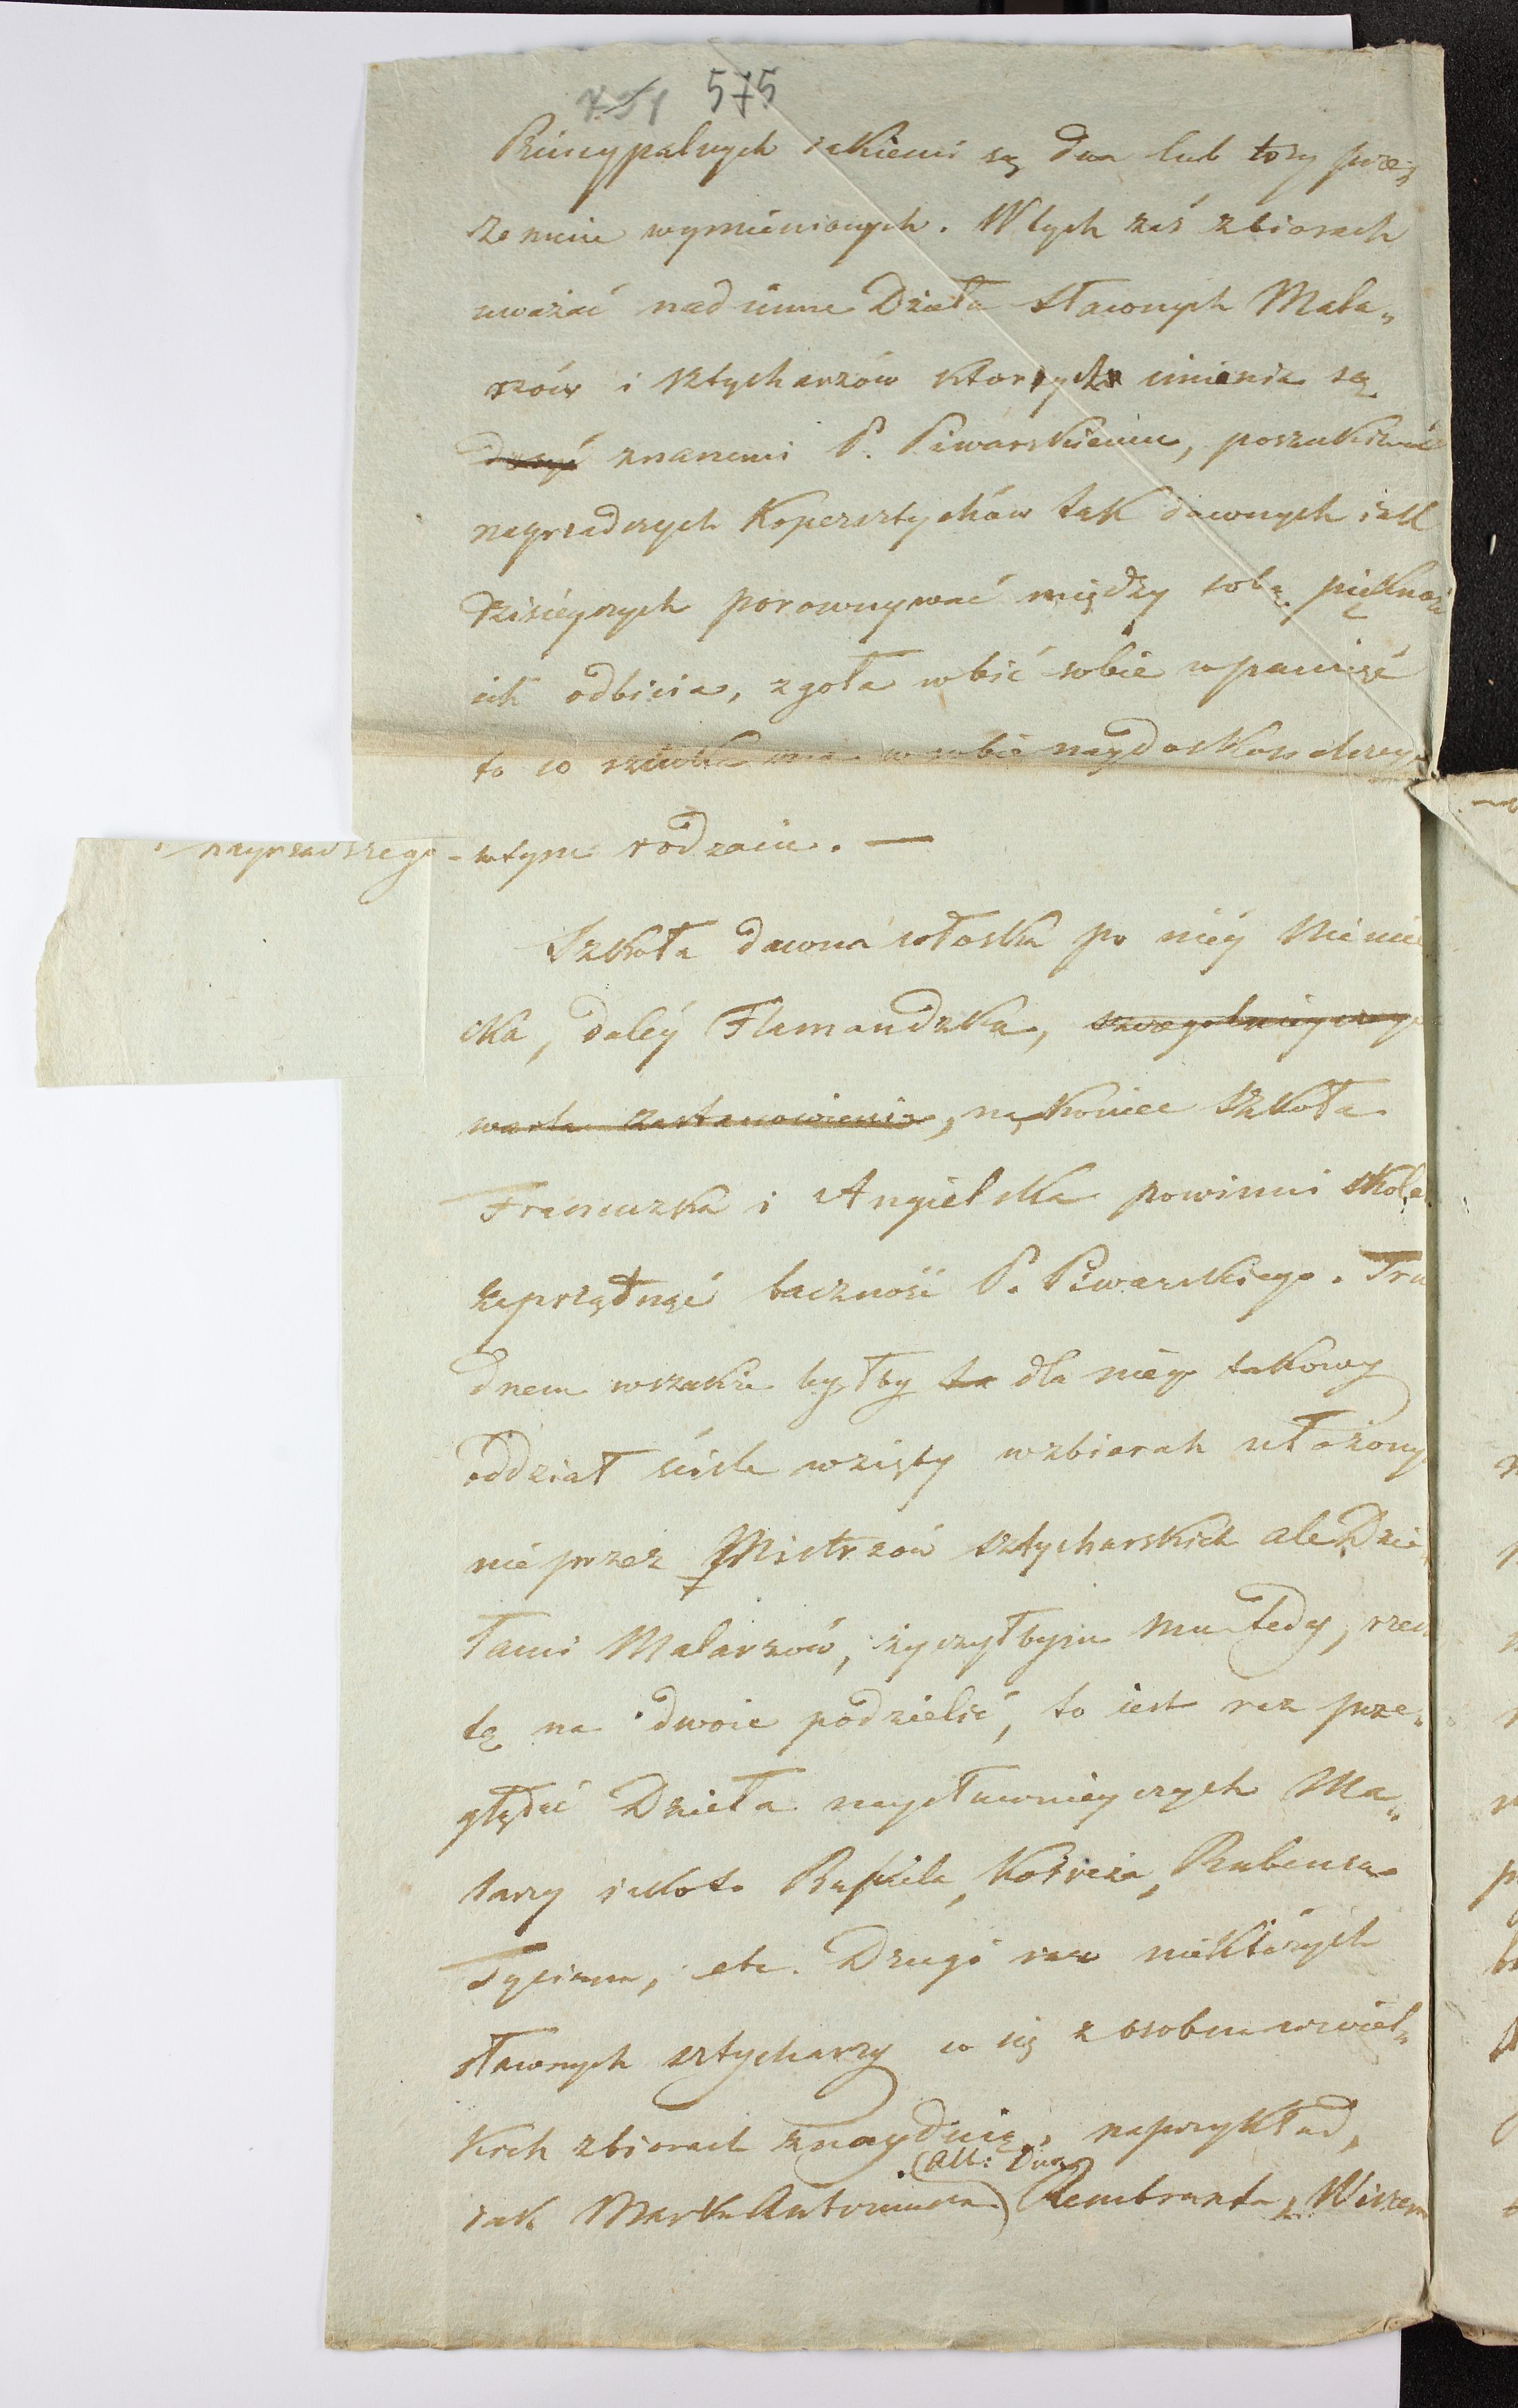 751 575
Princypalnych iakiemi są dwa lub trzy prze,,
ze mnie wymienionych. W tych zaś zbiorach
uważać nad inne Dzieła sławnych Mala,,
rzów i sztycharzów ktorych imiona są
dosyć znanemi P. Piwarskiemu, poszukiwać
nayrzadszych Kopersztychów tak dawnych iak
dzisieyszych porownywać między sobą piękność
ich odbicia, zgoła wbić sobie w pamięć
to co sztuka ma w sobie naydoskonalszego
i nayrzadszego - w tym rodzaiu. —
Szkoła dawna włoska po niéy Niemie
cka, daléy Flamandzka, szczegolnieyszego
warta zastanowienia, na koniec Szkoła
Francuzka i Angielska powinni koleią
zaprzątnąć baczność P. Piwarskiego. Tru
dnem wszakże byłby to dla niego takowy
oddział ściśle wzięty w zbiorach ułożony
nie przez Mistrzów sztycharskich ale Dzie,,
łami Malarzów, życzyłbym mu tedy, rzecz
tę na dwoie podzielić, to iest raz prze,,
glądać Dzieła naysławnieyszych Ma,,
larzy iakoto Rafaela, Koreża, Rubensa
Tyciana, etc. Drugi raz niektórych
sławnych sztycharzy co się z osobna w wiel,,
kich zbiorach znayduią, naprzykład,
(Alb: Dura)
iak Marka Antoniusza) Rembranta, Wiszera